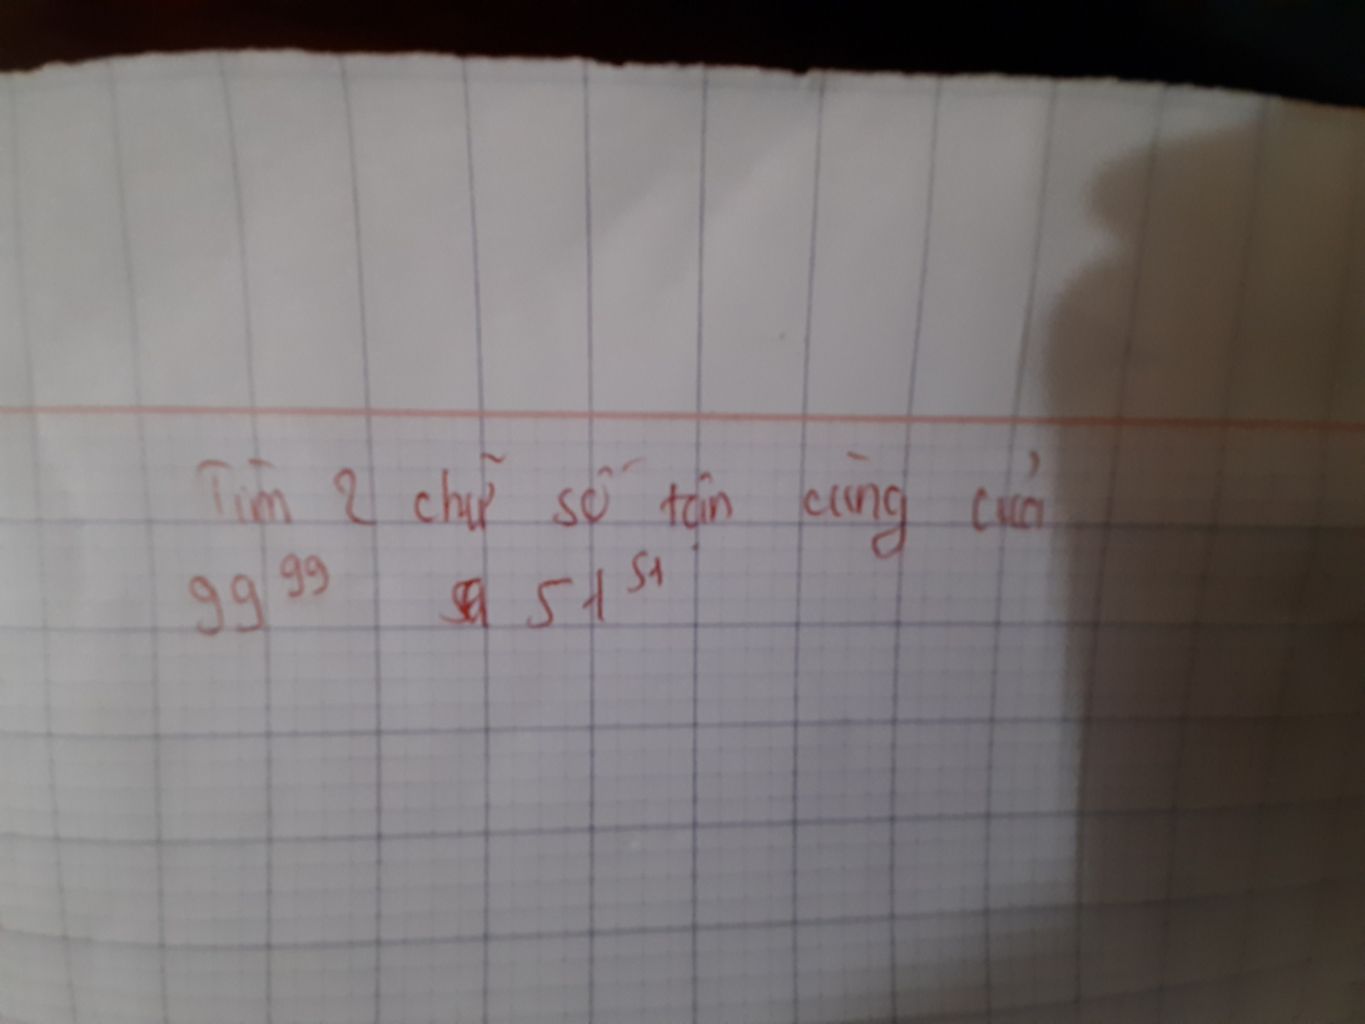 Tìm 2 chữ số tận cùng của
99^99 51^51